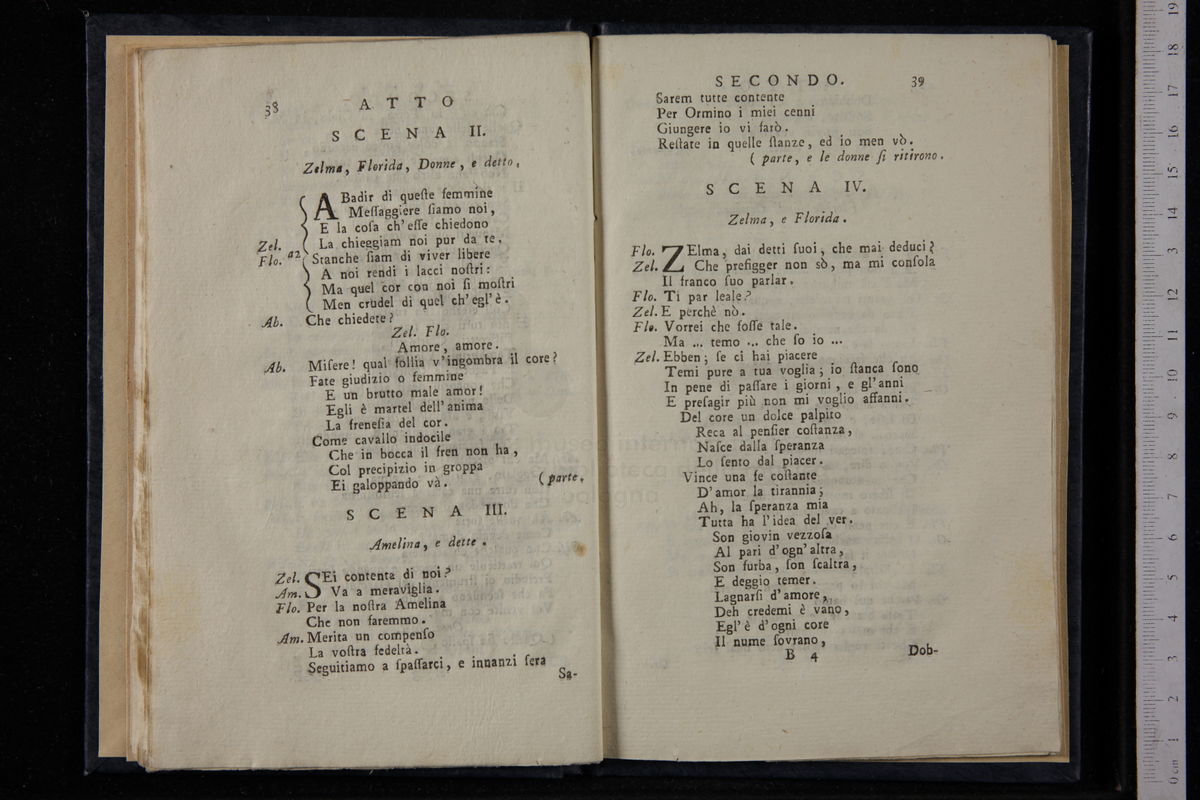 38
ATTO
SCENA II.
Zelma, Florida, Donne, e detto.
ABadir di queſte femmine
Meſſaggiere ſiamo noi,
E la coſa ch' eſſe chiedono
Zel. La chieggiam noi pur da te.
Flo. a2 Stanche ſiam di viver libere
A noi rendi i lacci noſtri:
Ma quel cor con noi ſi moſtri
Men crudel di quel ch' egl' è.
Ab. Che chiedete?
Zel. Flo.
Amore, amore.
Ab. Miſere! qual follia v' ingombra il core?
Fate giudizio o femmine
E un brutto male amor!
Egli è martel dell' anima
La freneſia del cor.
Come cavallo indocile
Che in bocca il fren non ha,
Col precipizio in groppa
Ei galoppando và. (parte.
SCENA III.
Amelina, e dette.
Zel. SEi contenta di noi?
Am. Va a meraviglia.
Flo. Per la noſtra Amelina
Che non faremmo.
Am. Merita un compenſo
La voſtra fedeltà.
Seguitiamo a ſpaſſarci, e innanzi ſera
Sa-
SECONDO. 39
Sarem tutte contente
Per Ormino i miei cenni
Giungere io vi farò.
Reſtate in quelle ſtanze, ed io men vò.
( parte, e le donne ſi ritirono.
SCENA IV.
Zelma, e Florida.
Flo. ZElma, dai detti ſuoi, che mai deduci?
Zel. Che prefigger non sò, ma mi conſola
Il franco ſuo parlar.
Flo. Ti par leale?
Zel. E perchè nò.
Flo. Vorrei che foſſe tale.
Ma ... temo ... che ſo io ...
Zel. Ebben; ſe ci hai piacere
Temi pure a tua voglia; io ſtanca ſono
In pene di paſſare i giorni, e gl' anni
E preſagir più non mi voglio affanni.
Del core un dolce palpito
Reca al penſier coſtanza,
Naſce dalla ſperanza
Lo ſento dal piacer.
Vince una fe coſtante
D' amor la tirannia;
Ah, la ſperanza mia
Tutta ha l' idea del ver.
Son giovin vezzoſa
Al pari d' ogn' altra,
Son furba, ſon ſcaltra,
E deggio temer.
Lagnarſi d' amore,
Deh credemi è vano,
Egl' è d' ogni core
Il nume ſovrano,
B 4
Dob-